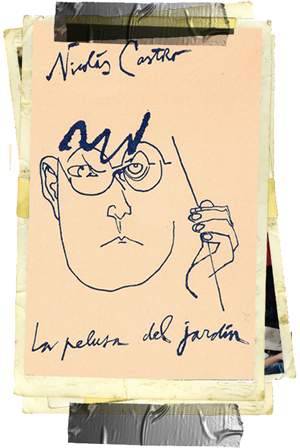 Nicolás Castro
La pelusa del jardín